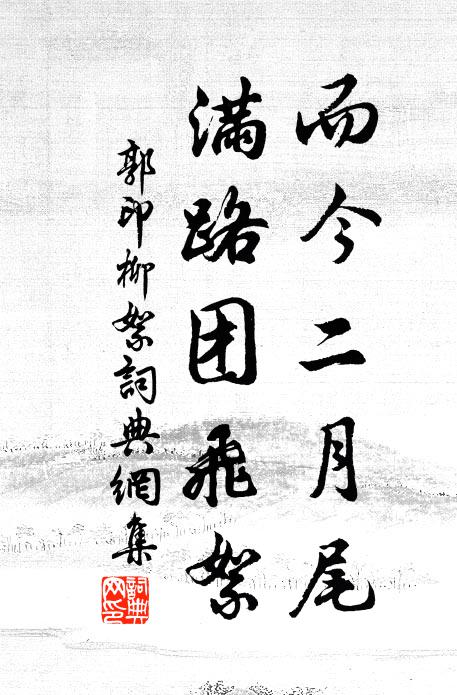 而今二月尾
满路团飛絮
郭印柳絮詞典網集
詞典网印